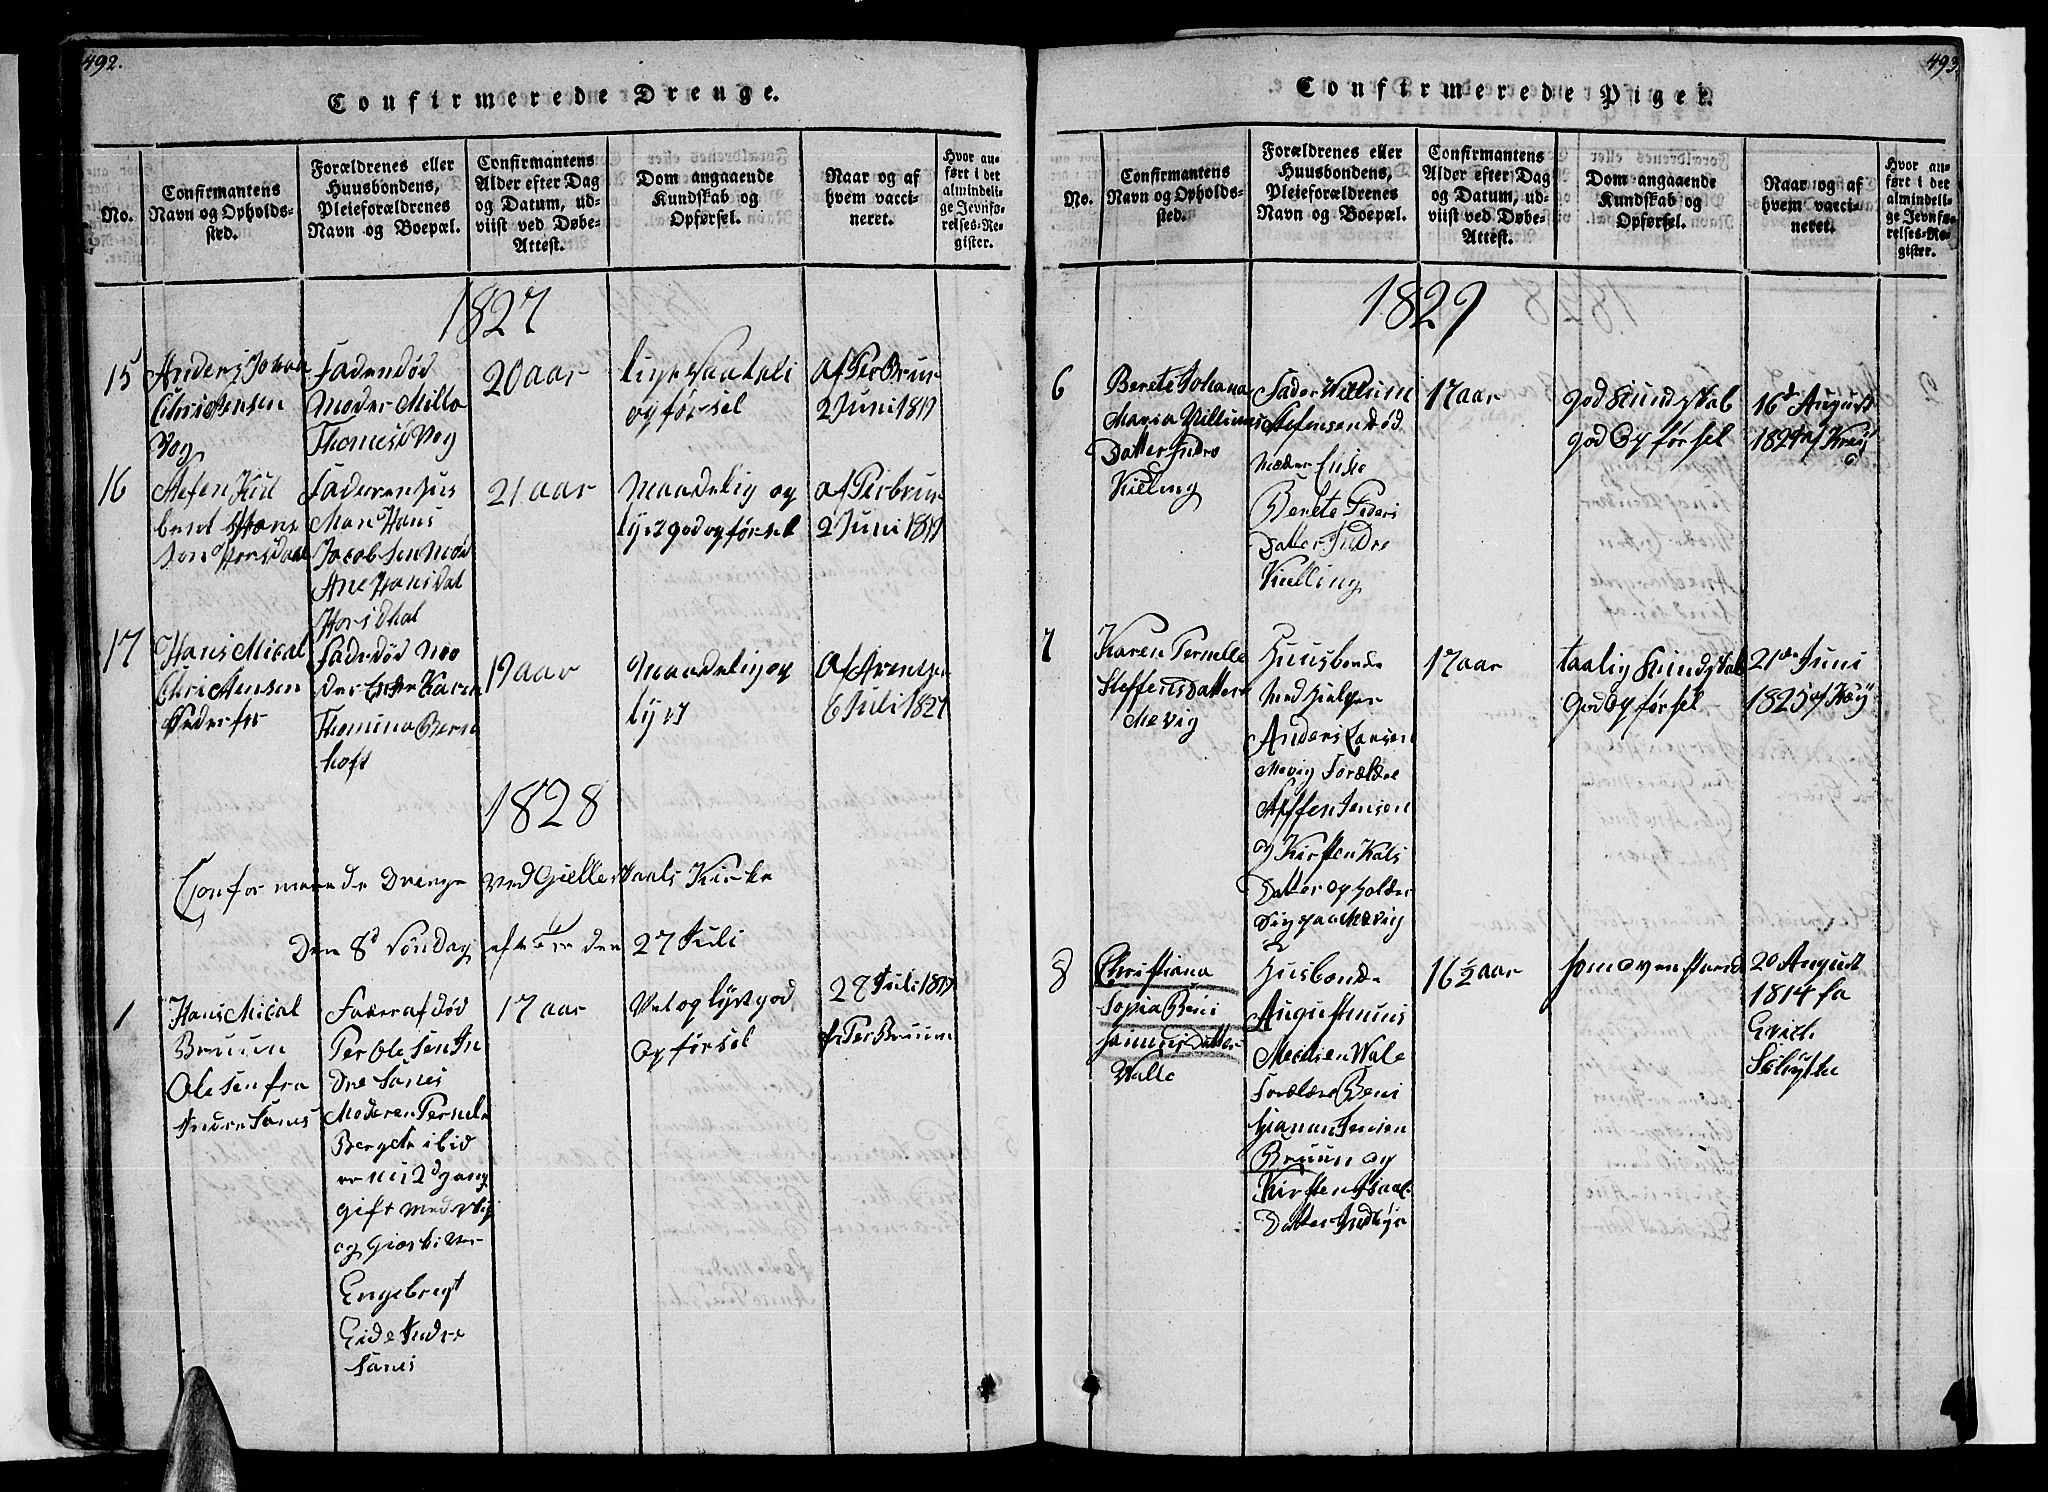 492.
Confirmerede Drenge.
No.
Confirmantens
Navn og Opholds-
sted.
Forældrenes eller
Huusbondens,
Pleieforældrenes
Navn og Boepæl.
Confirmantens
Alder efter Dag
og Datum, ud-
viist ved Døbe-
Attest.
Dom angaaende
Kundskab og
Opførsel.
Naar og af
hvem vacci-
neret.
Hvor an-
ført i det
almindeli-
ge Jevnfø-
relses-Re-
gister.
1827
15
Anders Johan
Christensen
Vog
Faderen død
Moder Milla
Thomesd Vog
20 aar
opførsel
af Per Bruu
2 Juni 1817
16
bent Hans
sen Horsdaal
Faderen Huus
Man Hans
Jacobsen Mod
Ane Hansdat
Horsdhal
21 aar
Maadelig og
lyst god opførsel
af Per bruu
2 Juni 1817
17
Hans Mical
Christensen
Fader død Mo
der Enke Karen
Thomina Bern
hoft
19 aar
Maadelig og
lyst
Af Arentzen
6 Juli 1827
1828
Conformerede Drenge ved Gilleskaals Kirke
Den 8d Søndag eft Tre den 27 Juli
1
Hans Mical
Bruun
Olesen fra
Indre Sanes
Fader af død
Per Olesen In
dre Sanes
Moderen Pernele
Bergete i lid
er nu i 2d gang
gift med
og
Engebregt
Eide Indre
Sanes
17 aar
Vel og lyst god
Opførsel
28 Juli 1817
af Per Bruun
493.
Confirmerede Piger.
No.
Confirmantens
Navn og Opholds-
sted.
Forældrenes eller
Huusbondens,
Pleieforældrenes
Navn og Boepæl.
Confirmantens
Alder efter Dag
og Datum, ud-
viist ved Døbe-
Attest.
Dom angaaende
Kundskab og
Opførsel.
Naar og af
hvem vacci-
neret.
Hvor an-
ført i det
almindeli-
ge Jevnfø-
relses-Re-
gister.
1827
6
Berete Johana
Maria Villums
Datter Indre
Kieling
Fader Willum
Stefensen død
Moder Enke
Berete Peders
Datter Indre
Kielling
17 aar
god Kundskab
god Opførsel
16d August
7
Karen Pernelle
Steffensdatter
Mevig
Huusbonde
Med Hielper
Anders Larsen
Mevig Forældre
Steffen Jensen
og Kirsten Kals
Datter opholder
sig paa Mevig
17 aar
taalig Kundskab
god Opførsel
21de Juni
1825 af
8
Christiana
Sophia Beni
jamins datter
Walle
Husbonde
Augustinuus
Madsen Wale
Forældre Beni
hiamin Jensen
Bruun og
Kirsten Isaac
Datter Indhyr
16 1/2 aar
som ovenstaaende
20 August
1814 fa